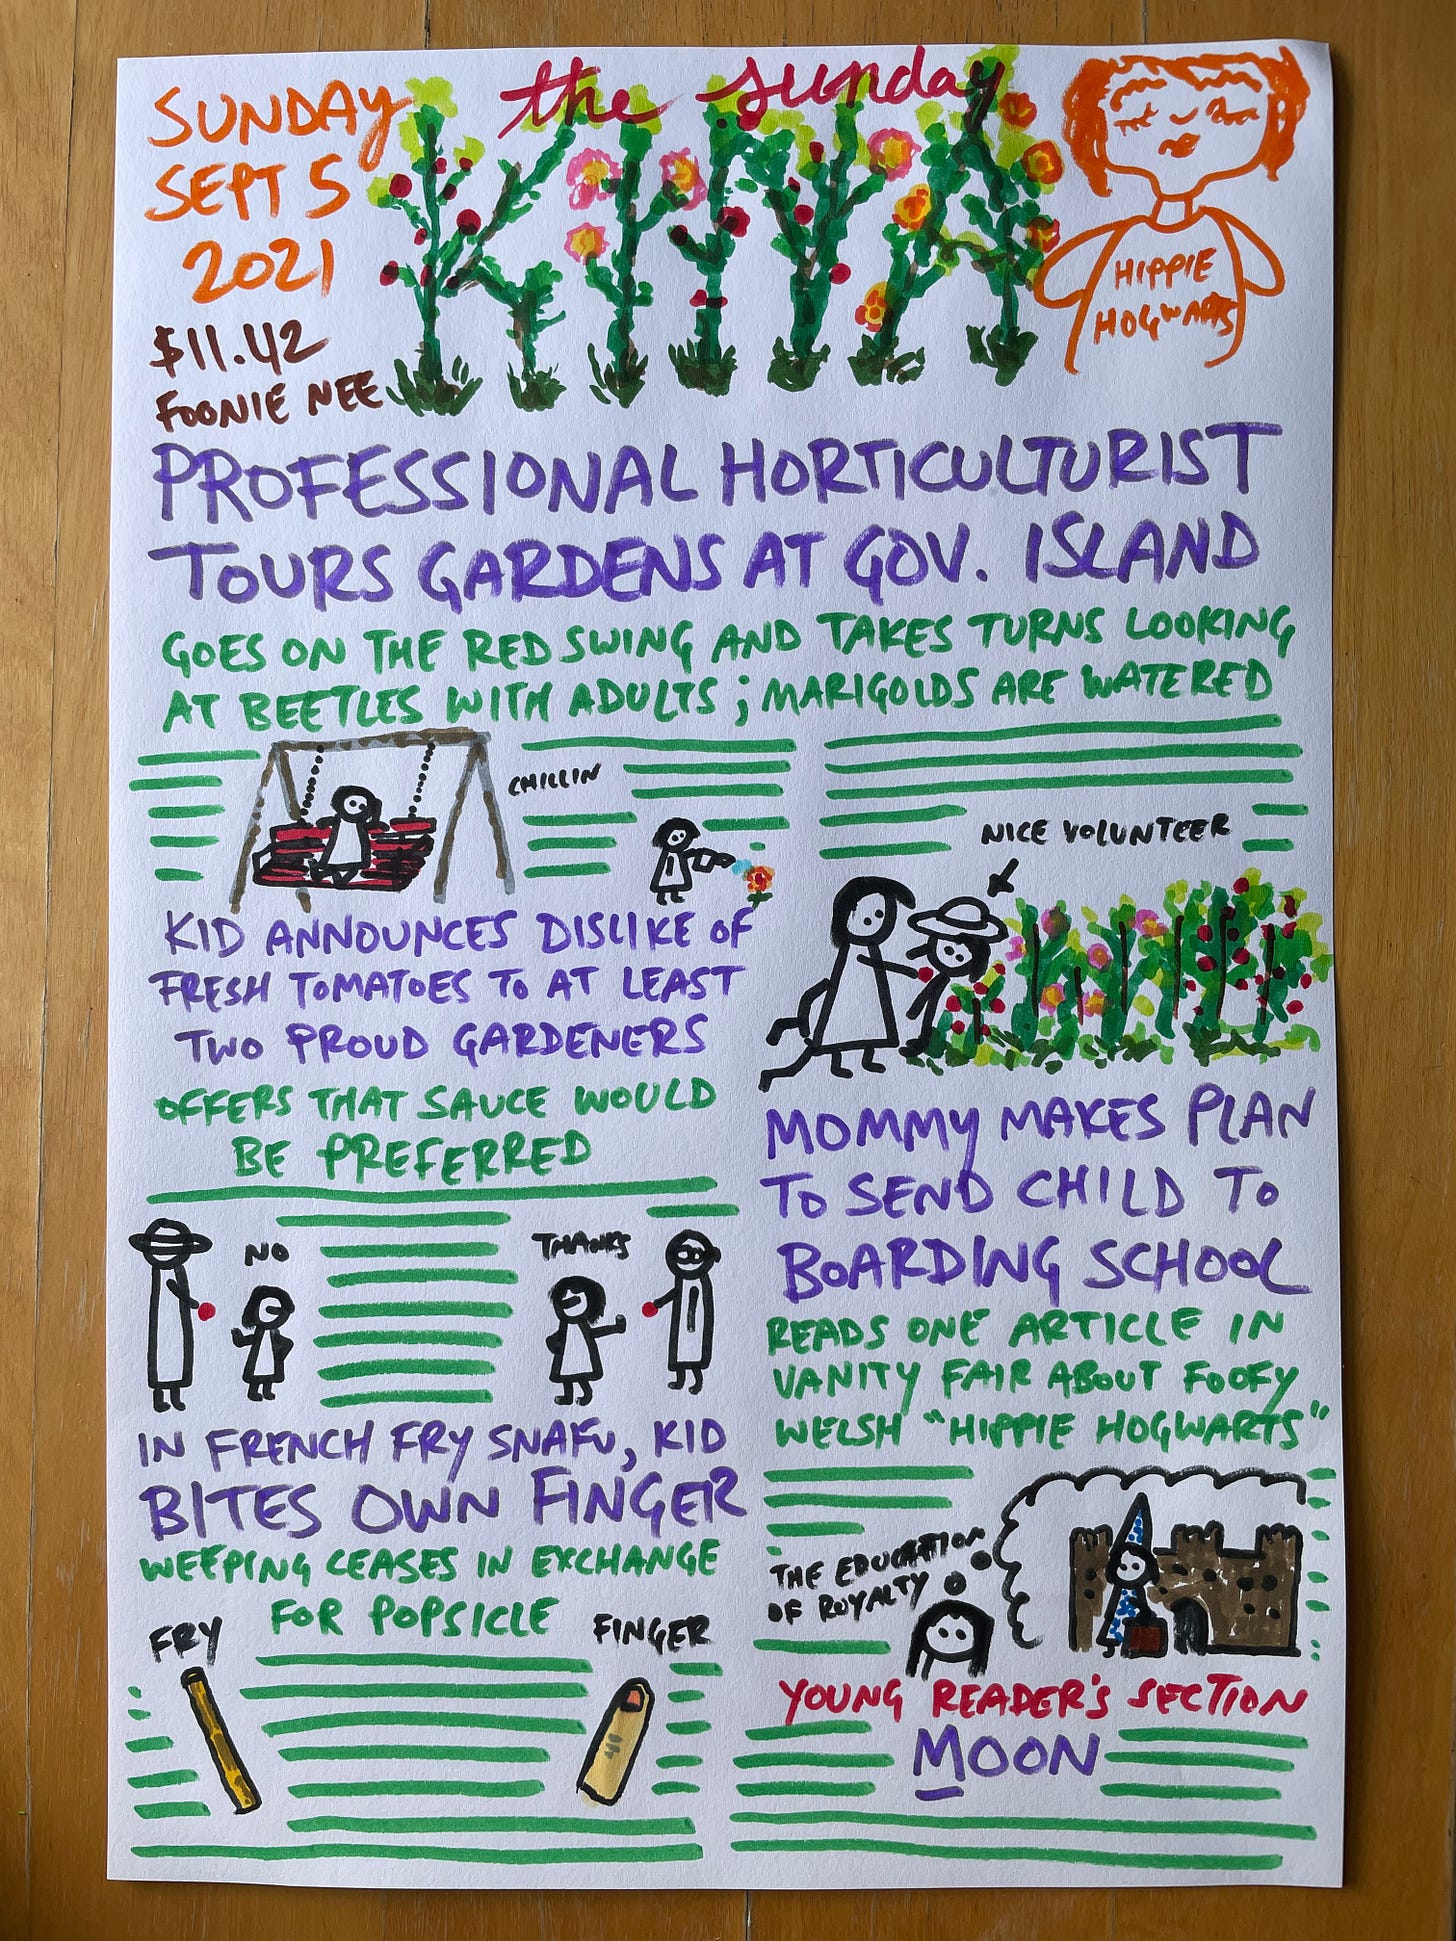 SUNDAY
SEPT 5
2021
$11.42
FOONIE NEE
the sunday
HIPPIE
HOGWARTS
PROFESSIONAL HORTICULTURIST
TOURS GARDENS AT GOV. ISLAND
GOES ON THE RED SWING AND TAKES TURNS LOOKING
AT BEETLES WITH ADULTS; MARIGOLDS ARE WATERED
CHILLIN
NICE VOLUNTEER
KID ANNOUNCES DISLIKE OF
FRESH TOMATOES TO AT LEAST
TWO PROUD GARDENERS
OFFERS THAT SAUCE WOULD
BE PREFERRED
NO
THANKS
IN FRENCH FRY SNAFU, KID
BITES OWN FINGER
WEEPING CEASES IN EXCHANGE
FOR POPSICLE
FRY
FINGER
MOMMY MAKES PLAN
TO SEND CHILD TO
BOARDING SCHOOL
READS ONE ARTICLE IN
VANITY FAIR ABOUT FOOFY
WELSH "HIPPIE HOGWARTS"
THE EDUCATION
OF ROYALTY
YOUNG READER'S SECTION
MOON